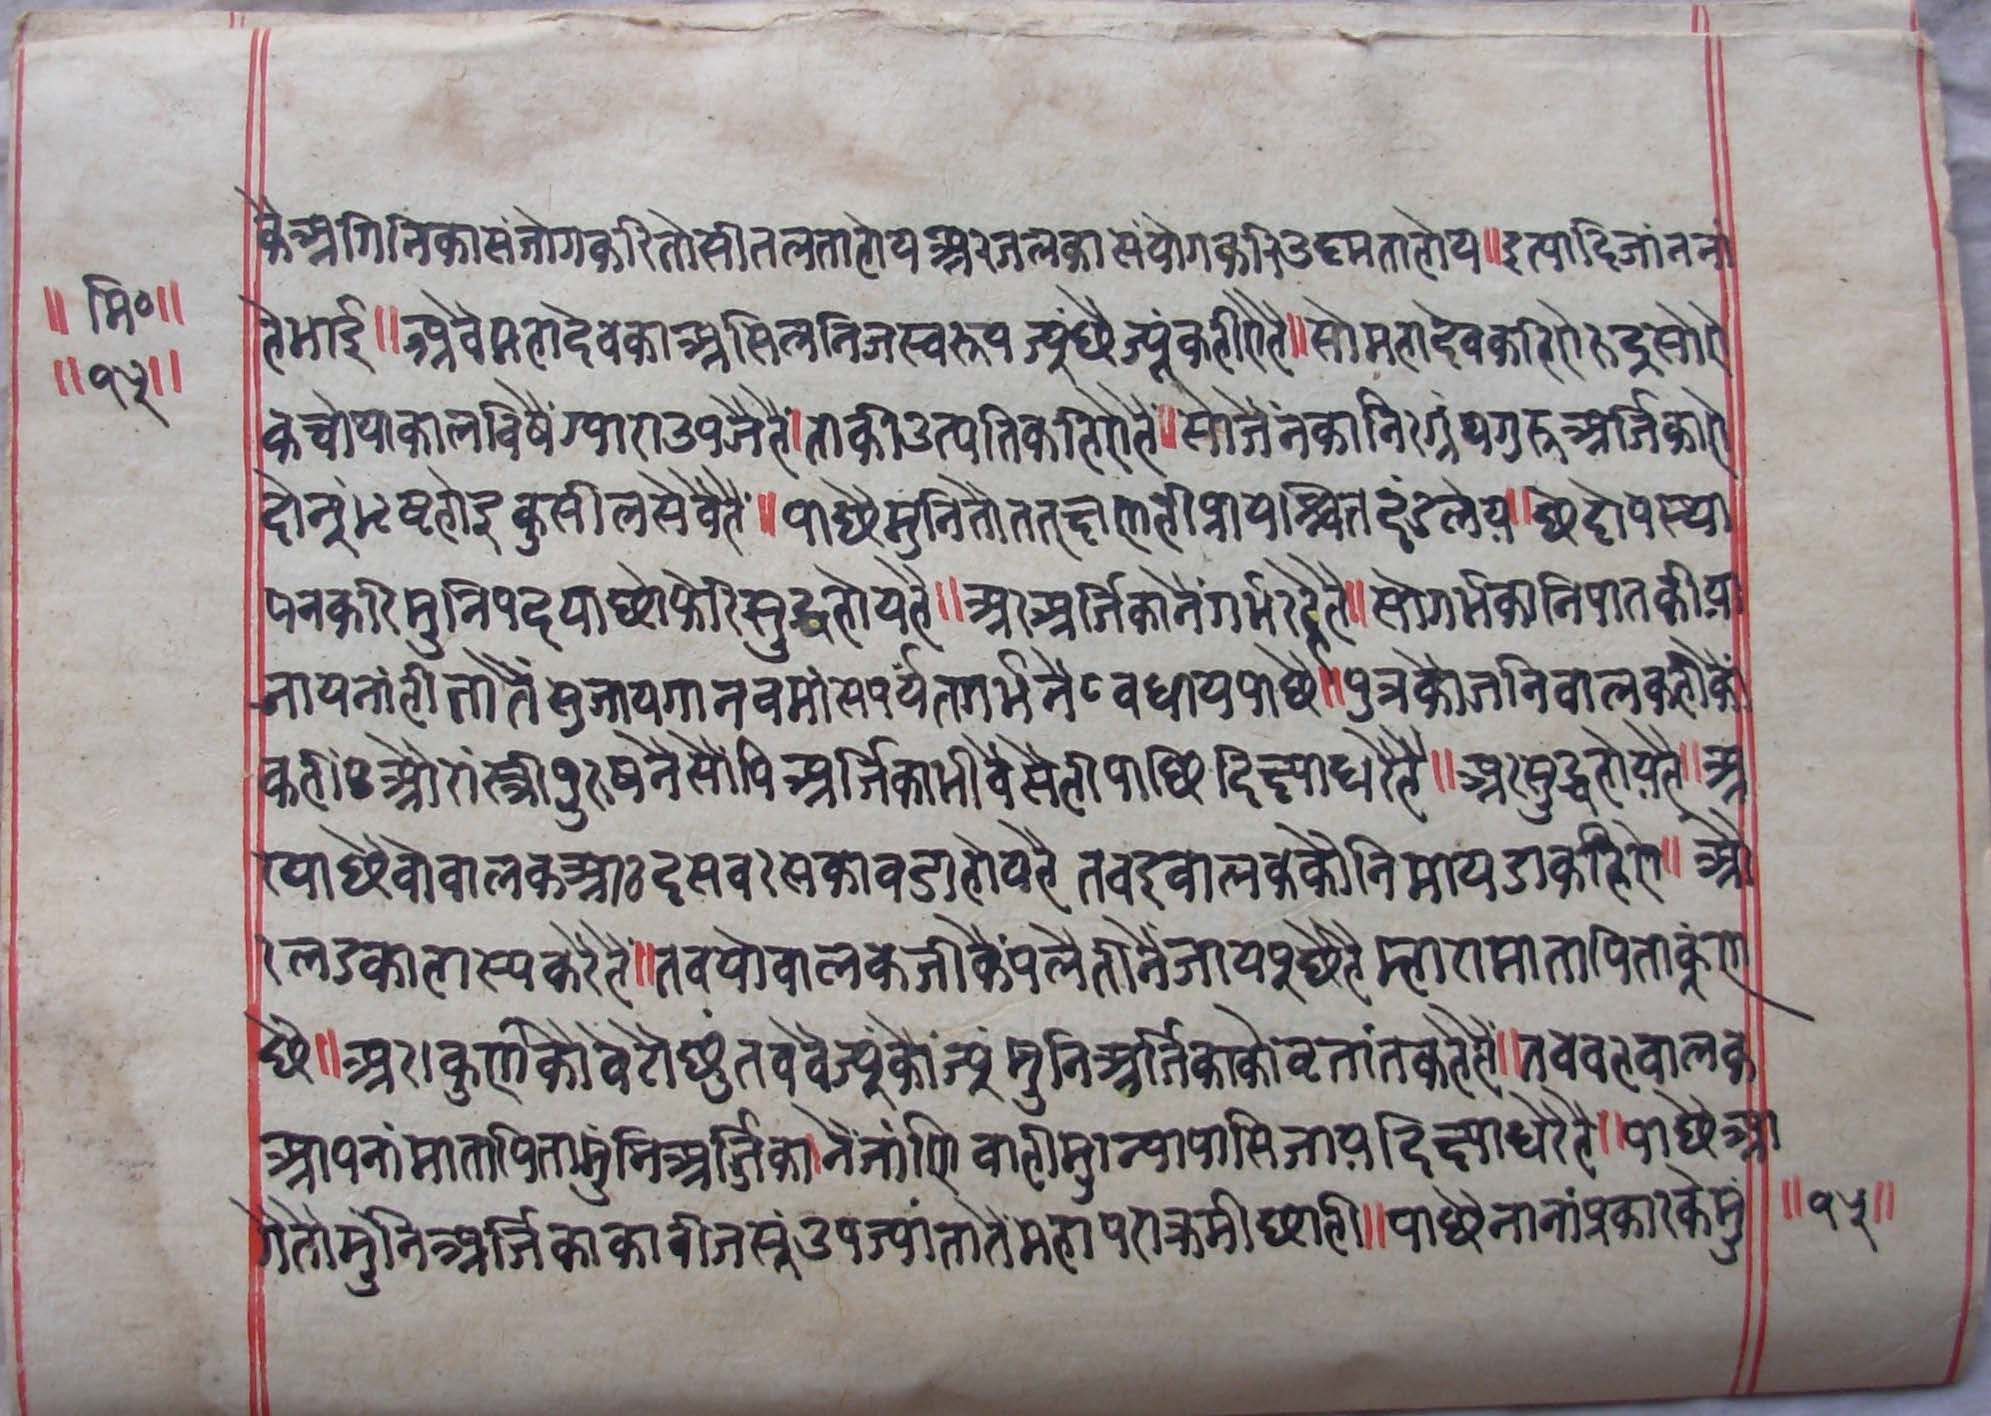 कै अगिनिका संजोग करि तो सीतलता होय अर जलका संयोग करि उष्मता होय ॥ इत्यादि जांननां
॥ मि० ॥
॥ १५ ॥
हे भाई ॥ अवै महादेवका असिल निज स्वरूप ज्यूं छै ज्यूं कहीए है ॥ सो महादेव कहिए रुद्र सो ऐ
क चोथा काल विषैं ग्यारा उपजै है । ताकी उत्पति कहिए है ॥ सो जैनका निरग्रंथ गुरु अर्जिका ऐ
दोनूं भ्रष्ट होइ कुसील सेवै है ॥ पाछै मुनि तौ ततक्षण ही प्रायश्चित दंड लेय ॥ छेदोपस्था
पन करि मुनि पद पाछो फेरि सुद्ध होय है ॥ अर अर्जिकानै गर्भ रहै है ॥ सो गर्भका निपात कीया
जाय नांही तातैं सु जायगा नव मांस पर्यंत गर्भनै वधाय पाछै ॥ पुत्रकौ जनि बालक कहीकैं
कहीं औरां स्त्री पुरुषनै सौंपि अर्जिका भी वैसै ही पाछि दिक्ष्या धरै है ॥ अर सुद्ध होय है ॥ अ
र पाछै वो बालक आठ दस वरसका बडा होय है तब इ बालककौ निमाय डा कहिए ॥ और
र लडका हास्य करै है ॥ तब यो बालक जीकैं पलै तीनै जाय पूछै है म्हारा माता पिता कूंण
छै ॥ अर। कुणकौ बेटो छुं तब वै ज्यूंकौ ज्यूं मुनि अर्जिकाको वृतांत कहै है ॥ तब वह बालक
आपनां माता पिता मुंनि अर्जिकानैं जांणि वाही मुन्या पासि जाय दिक्ष्या धरै है ॥ पाछै आ
गै तो मुंनि अर्जिकाका बीजसूं उपज्यां तातैं महा पराक्रमी छा ही ॥ पाछै नानां प्रकारके मुं
॥ १५ ॥